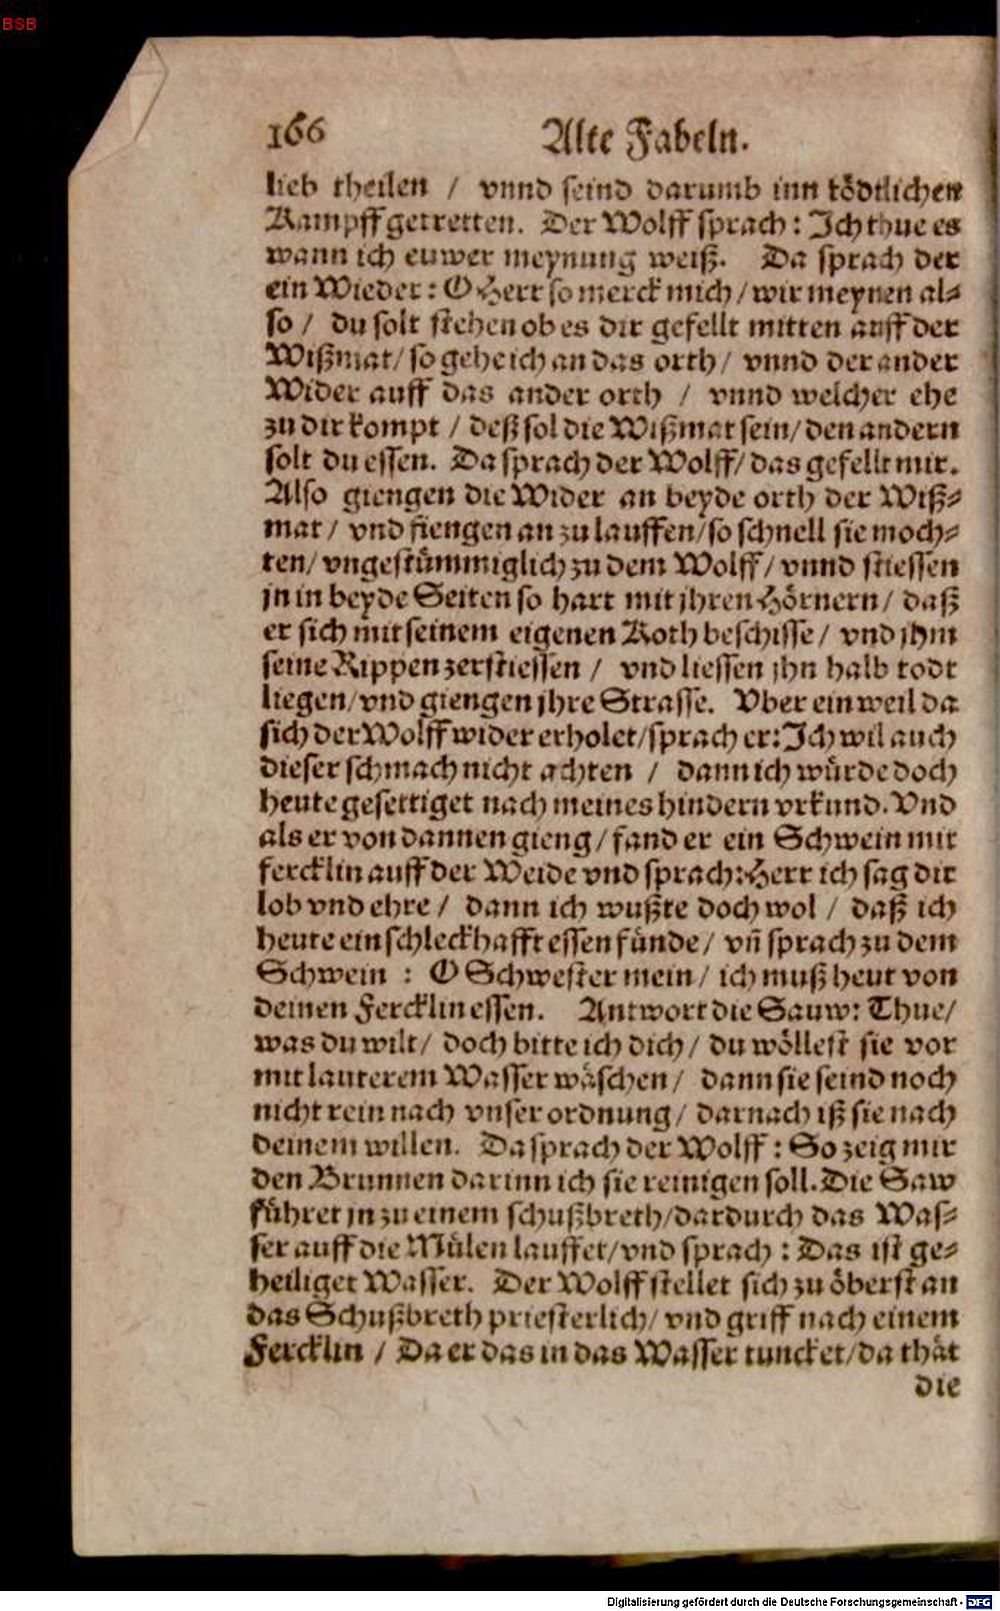 BSB
166 Alte Fabeln.
lieb theilen / vnnd seind darumb inn tödtlichen
Kampff getretten. Der Wolff sprach: Ich thue es
wann ich euwer meynung weiß. Da sprach der
ein Wieder: O Herr so merck mich / wir meynen al⸗
so / du solt stehen ob es dir gefellt mitten auff der
Wißmat / so gehe ich an das orth / vnnd der ander
Wider auff das ander orth / vnnd welcher ehe
zu dir kompt / deß sol die Wißmat sein / den andern
solt du essen. Da sprach der Wolff / das gefellt mir.
Also giengen die Wider an beyde orth der Wiß⸗
mat / vnd fiengen an zu lauffen / so schnell sie moch⸗
ten / vngestümmiglich zu dem Wolff / vnnd stiessen
jn in beyde Seiten so hart mit jhren Hörnern / daß
er sich mit seinem eigenen Koth beschisse / vnd jhm
seine Rippen zerstiessen / vnd liessen jhn halb todt
liegen / vnd giengen jhre Strasse. Vber ein weil da
sich der Wolff wider erholet / sprach er: Ich wil auch
dieser schmach nicht achten / dann ich würde doch
heute gesettiget nach meines hindern vrkund. Vnd
als er von dannen gieng / fand er ein Schwein mit
fercklin auff der Weide vnd sprach: Herr ich sag dir
lob vnd ehre / dann ich wußte doch wol / daß ich
heute ein schleckhafft essen fünde / vñ sprach zu dem
Schwein : O Schwester mein / ich muß heut von
deinen Fercklin essen. Antwort die Sauw: Thue /
was du wilt / doch bitte ich dich / du wöllest sie vor
mit lauterem Wasser wäschen / dann sie seind noch
nicht rein nach vnser ordnung / darnach iß sie nach
deinem willen. Da sprach der Wolff : So zeig mir
den Brunnen darinn ich sie reinigen soll. Die Saw
führet jn zu einem schußbreth / dardurch das Was⸗
ser auff die Mülen lauffet / vnd sprach : Das ist ge⸗
heiliget Wasser. Der Wolff stellet sich zu öberst an
das Schußbreth priesterlich / vnd griff nach einem
Fercklin / Da er das in das Wasser tuncket / da thät
die
Digitalisierung gefördert durch die Deutsche Forschungsgemeinschaft - DFG